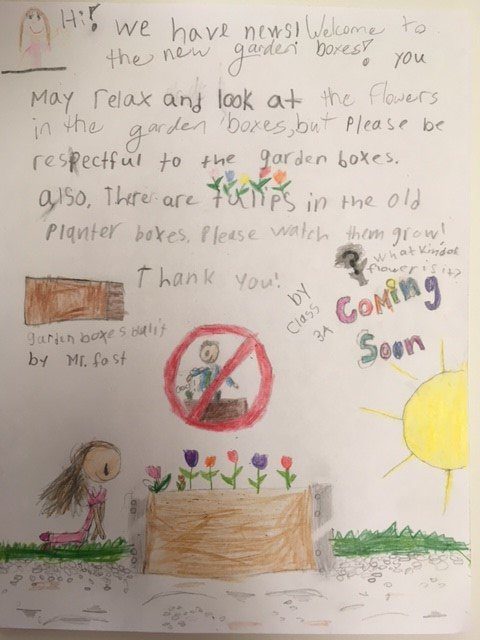 Hi! We have news! Welcome to
the new garden boxes! You
May relax and look at the flowers
in the garden boxes, but Please be
respectful to the garden boxes.
also, There are tulips in the old
Planter boxes. Please watch them grow!
Thank you!
?
what kind of
flower is it?
by
Class
3A
Coming
Soon
garden boxes bulit
by Mr. fast